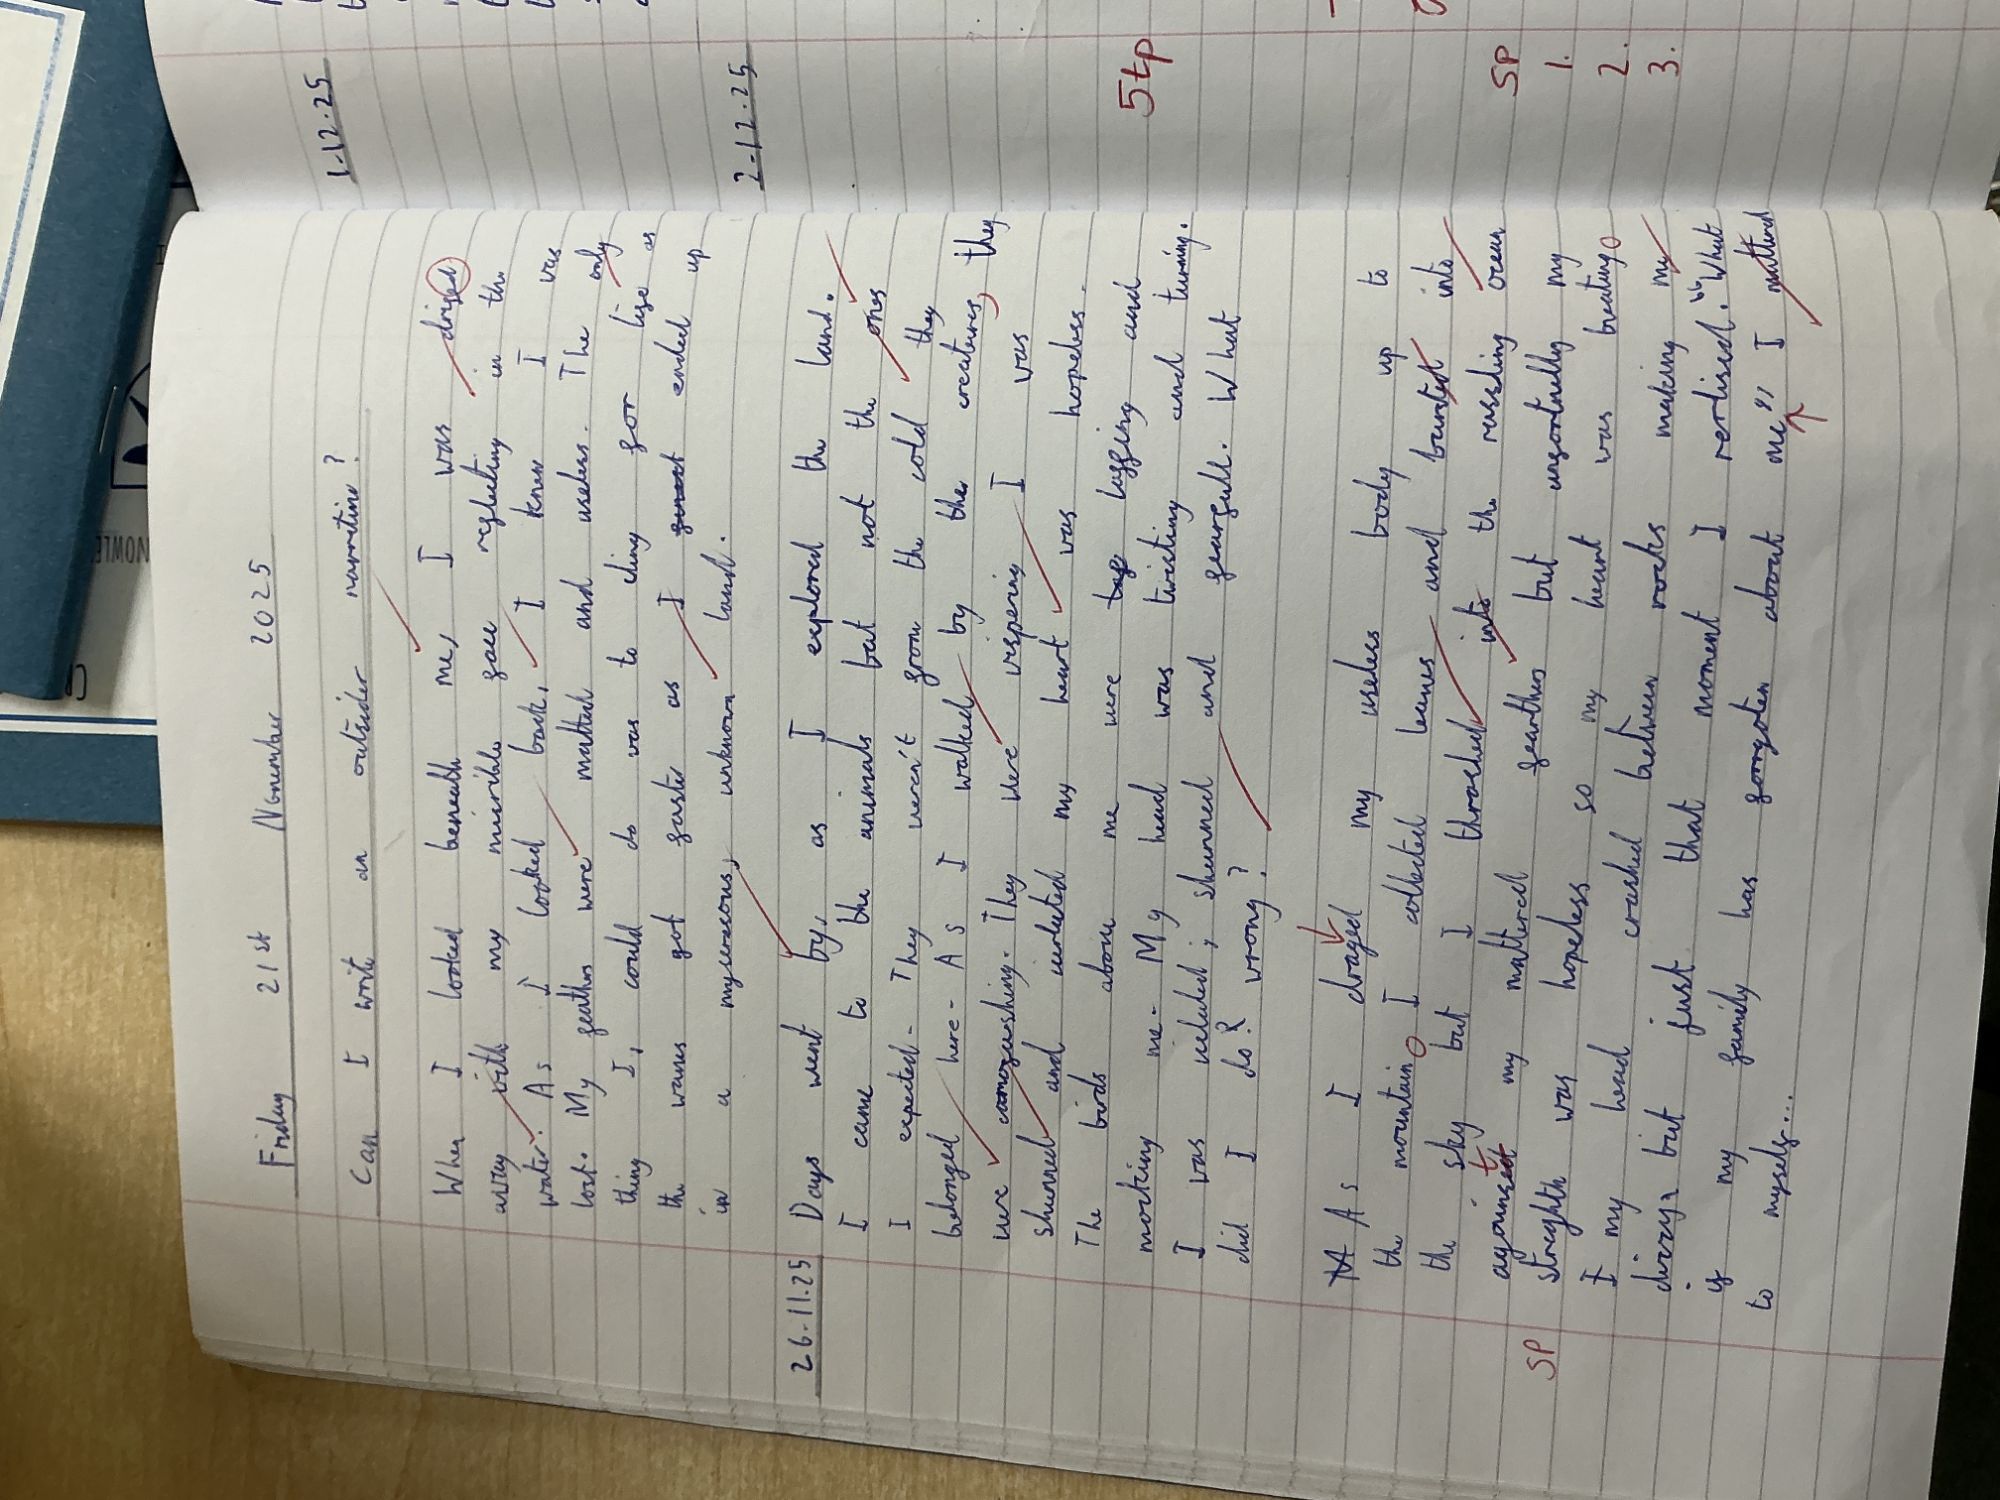 Friday 21st November 2025
Can I write an outsider narrative?
When I looked beneath me, I was drifed
away with my mirrible face reflecting in the
water. As I looked back, I knew I was
lost. My feathers were mattered and useless. The only
thing I, could do was to cling for life as
the waves got faster as I ended up
in a myserous, unknown land.
26.11.25
Days went by, as I explored the land.
I came to the animals but not the ones
I expected. They weren't from the cold they
belonged here. As I walked by the creatures, they
were They were vispering I was
shunned and isolated my heart was hopeless.
The birds above me were lugging and
mocking me. My head was twisting and turning.
I was isolated; shunned and fearfull. What
did I do? wrong?
As I draged my useless body up to
the mountain I collected leaves and bursted into
the sky but I thrashed into the ressling ocean
my mattered fearthers but unfortunlly my
streghth was hopeless so my heart was beating
I my head crushed between rocks making me
dizzy, but just that moment I rerlised. "What
if my family has forgoten about me", I muttered
to myself...
SP
1-12.25
2-12.25
Stp
SP
1.
2.
3.